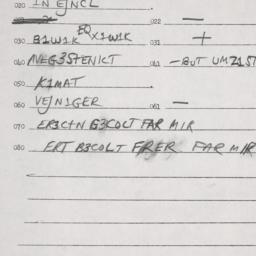 020 IN EJNCL
022 —
030 B1W1K EQX1W1K 031 +
040 NEG3STENICT 041 — BUT UMZ1ST
050 K1MAT
060 VEJN1GER 061 —
070 ER3C+N B3COLT FAR MIR
080 ERT B3COLT FRER FAR MIR